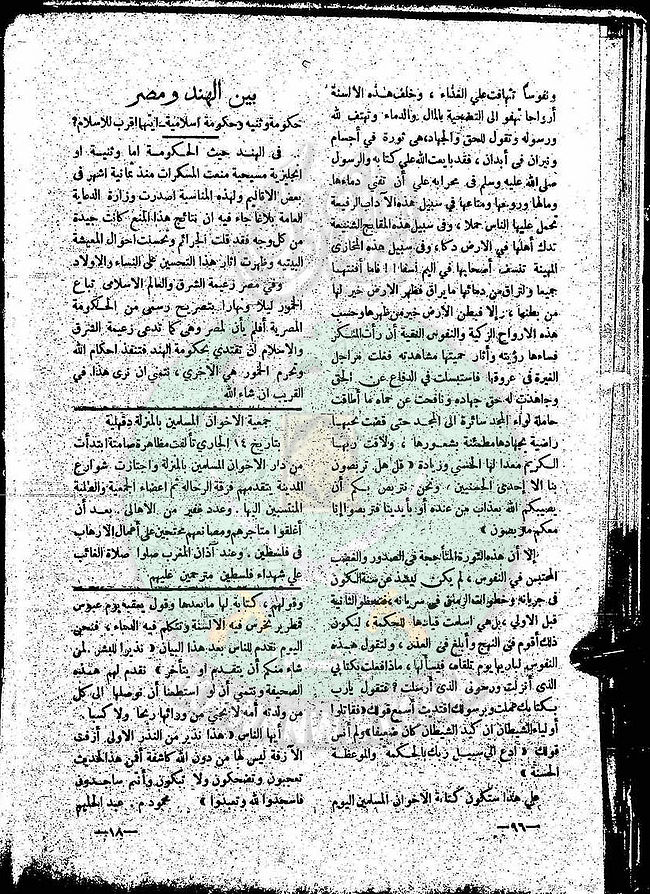 ونفوساً تهافت علي الفداء ، وخلف هذه الالسنة
أرواحا تهفو الى التضحية بالمال والدماء وتهتف لله
ورسوله وتقول للحق والجهاد، هى ثورة في أجسام
ونيران في أبدان ، فقد بايعت الله علي كتابه والرسول
صلى الله عليه وسلم فى محرابه علي أن تفني دماءها
ومالها وروعها ومتاعها في سبيل هذه الآداب الرفيعة
تحمل عليها الناس حملا ، وفى سبيل هذه المقابح الشنيعة
تدك أهلها في الارض دكا ، وفى سبيل هذه المخازى
المهينة تنسف أصحابها في اليم نسفا ! ! فاما أفنتها
جميعا ولتراق من دمائها ما يراق فظهر الارض خير لها
من بطنها ، وإلا فبطن الأرض خير من ظهرها وحسب
هذه الارواح الزكية والنفوس النقية أن رأت المنكر
فساءها رؤيته وأثار حميتها مشاهدته فغلت مراجل
الغيرة في عروقها فاستبسلت في الدفاع عن الحق
وجاهدت له حق جهاده ونافحت عن حماه ما أطاقت
حاملة لواء المجد سائرة الى المجد حتى قضت نحبها
راضية بجهادها مطمئنة بشعورها ، ولاقت ربها
الكريم معدا لها الحسني وزيادة « قل هل تربصون
بنا إلا إحدى الحسنيين ، ونحن نتربص بكم أن
يصيبكم الله بعذاب من عنده أو بأيدينا فتربصوا إنا
معكم متربصون »
إلا أن هذه الثورة المتأججة فى الصدور والغضب
المحتبس في النفوس ، لم يكن ليشذ عن سنة الكون
فى جريانه وخطوات الزمان في سريانه ، فتسطو الثانية
قبل الاولي ، بل هي اسلمت قيادها للحكمة ، ليكون
ذلك أقوم فى النهج وأبلغ فى العذر ، ولتقول هذه
النفوس لباريها يوم تلقاه، فيسألها ، ماذا فعلت بكتابي
الذى أنزلت ورسولى الذى أرسلت ؟ فتقول يارب
بكتابك عملت وبرسولك اقتديت أسمع قولك «فقاتلوا
أولياء الشيطان ان كيد الشيطان كان ضعيفا» ولم أنس
قولك « ادع الى سبيل ربك بالحكمه والموعظة
الحسنة »
علي هذا ستكون كتابة الاخوان المسلمين اليوم
— ٩٦ —
بين الهند ومصر
حكومة وثنيه وحكومة إسلامية ـ ايهما اقرب للاسلام؟
.. فى الهند حيث الحكومة اما وثنية او
انجليزية مسيحية منعت المسكرات منذ ثمانية اشهر فى
بعض الاقاليم ولهذه المناسبة اصدرت وزارة الدعاية
العامة بلاغا جاء فيه ان نتائج هذا المنع كانت جيدة
من كل وجه فقد قلت الجرائم وتحسنت احوال المعيشة
البيتيه وظهرت اثار هذا التحسين على النساء والاولاد
وفي مصر زعيمة الشرق والعالم الاسلامى تباع
الخمور ليلا ونهارا بتصريح رسمى من الحكومة
المصرية أفلم يأن لمصر وهى كما تدعى زعيمة الشرق
والاسلام أن تقتدي بحكومة الهند فتنفذ احكام الله
وتحرم الخمور هي الاخرى ، نتمنى ان نرى هذا في
القريب ان شاء الله
جمعية الاخوان المسلمين بالمنزلة دقهلية
بتاريخ ١٤ الجارى تألفت مظاهرة صامتة ابتدأت
من دار الاخوان المسلمين بالمنزلة واجتازت شوارع
المدينة يتقدمهم فرقة الرحاله ثم اعضاء الجمعية والطلبة
المنتسبين اليها ، وعدد غفير من الأهالى بعد أن
أغلقوا متاجرهم ومصانعهم محتجين على أعمال الارهاب
فى فلسطين . وعند آذان المغرب صلوا صلاة الغائب
علي شهداء فلسطين مترحمين عليهم
وقولهم ، كتابة لها ما بعدها وقول يعقبه يوم عبوس
قمطرير تخرس فيه الالسنة وتتكلم فيه الدماء ، فنحن
اليوم نقدم للناس بعد هذا البيان « نذيرا للبشر لمن
شاء منكم أن يتقدم او يتأخر » نقدم لهم هذه
الصحيفة ونتمنى أن لو استطعنا أن نوصلها الى كل
من ولدته أمه لا نجني من ورائها ربحا ولا كسبا .
أيها الناس « هذا نذير من النذر الاولى أزفت
الآزفة ليس لها من دون الله كاشفة أفمن هذا الحديث
تعجبون وتضحكون ولا تبكون وأنتم سامدون
فاسجدوا لله وتعبدوا » محمود م . عبد الحليم
— ١٨ —